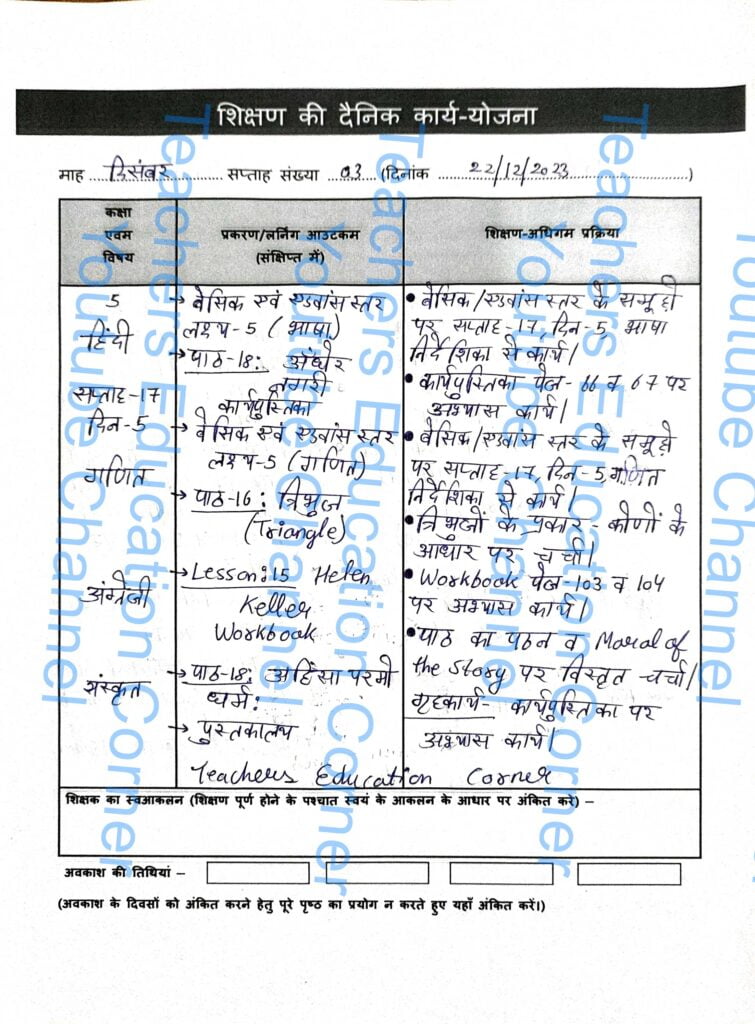 शिक्षण की दैनिक कार्य-योजना
माह ... दिसंबर ... सप्ताह संख्या ... 03 ... (दिनांक ... 22/12/2023 ...)
कक्षा
एवम
विषय
प्रकरण/लर्निंग आउटकम
(संक्षिप्त में)
शिक्षण-अधिगम प्रक्रिया
5
हिंदी
सप्ताह-17
दिन-5
गणित
अंग्रेजी
संस्कृत
→ बेसिक एवं एडवांस स्तर
लक्ष्य-5 (भाषा)
→ पाठ-18: अंधेर
नगरी
कार्यपुस्तिका
→ बेसिक एवं एडवांस स्तर
लक्ष्य-5 (गणित)
→ पाठ-16: त्रिभुज
(Triangle)
→ Lesson:15 Helen
Keller
Workbook
→ पाठ-18: अहिंसा परमो
धर्म:
→ पुस्तकालय
• बेसिक/एडवांस स्तर के समूहों
पर सप्ताह-17, दिन-5, भाषा
निर्देशिका से कार्य।
• कार्यपुस्तिका पेज-66 व 67 पर
अभ्यास कार्य।
• बेसिक/एडवांस स्तर के समूहों
पर सप्ताह-17, दिन-5, गणित
निर्देशिका से कार्य।
• त्रिभुजों के प्रकार - कोणों के
आधार पर चर्चा।
• Workbook पेज-103 व 104
पर अभ्यास कार्य।
• पाठ का पठन व Moral of
the Story पर विस्तृत चर्चा।
गृहकार्य- कार्यपुस्तिका पर
अभ्यास कार्य।
Teachers Education Corner
शिक्षक का स्वआकलन (शिक्षण पूर्ण होने के पश्चात स्वयं के आकलन के आधार पर अंकित करे) –
अवकाश की तिथियां –
(अवकाश के दिवसों को अंकित करने हेतु पूरे पृष्ठ का प्रयोग न करते हुए यहाँ अंकित करें।)
Teachers Education Corner
Youtube Channel
Teachers Education Corner
Youtube Channel
Teachers Education Corner
Youtube Channel